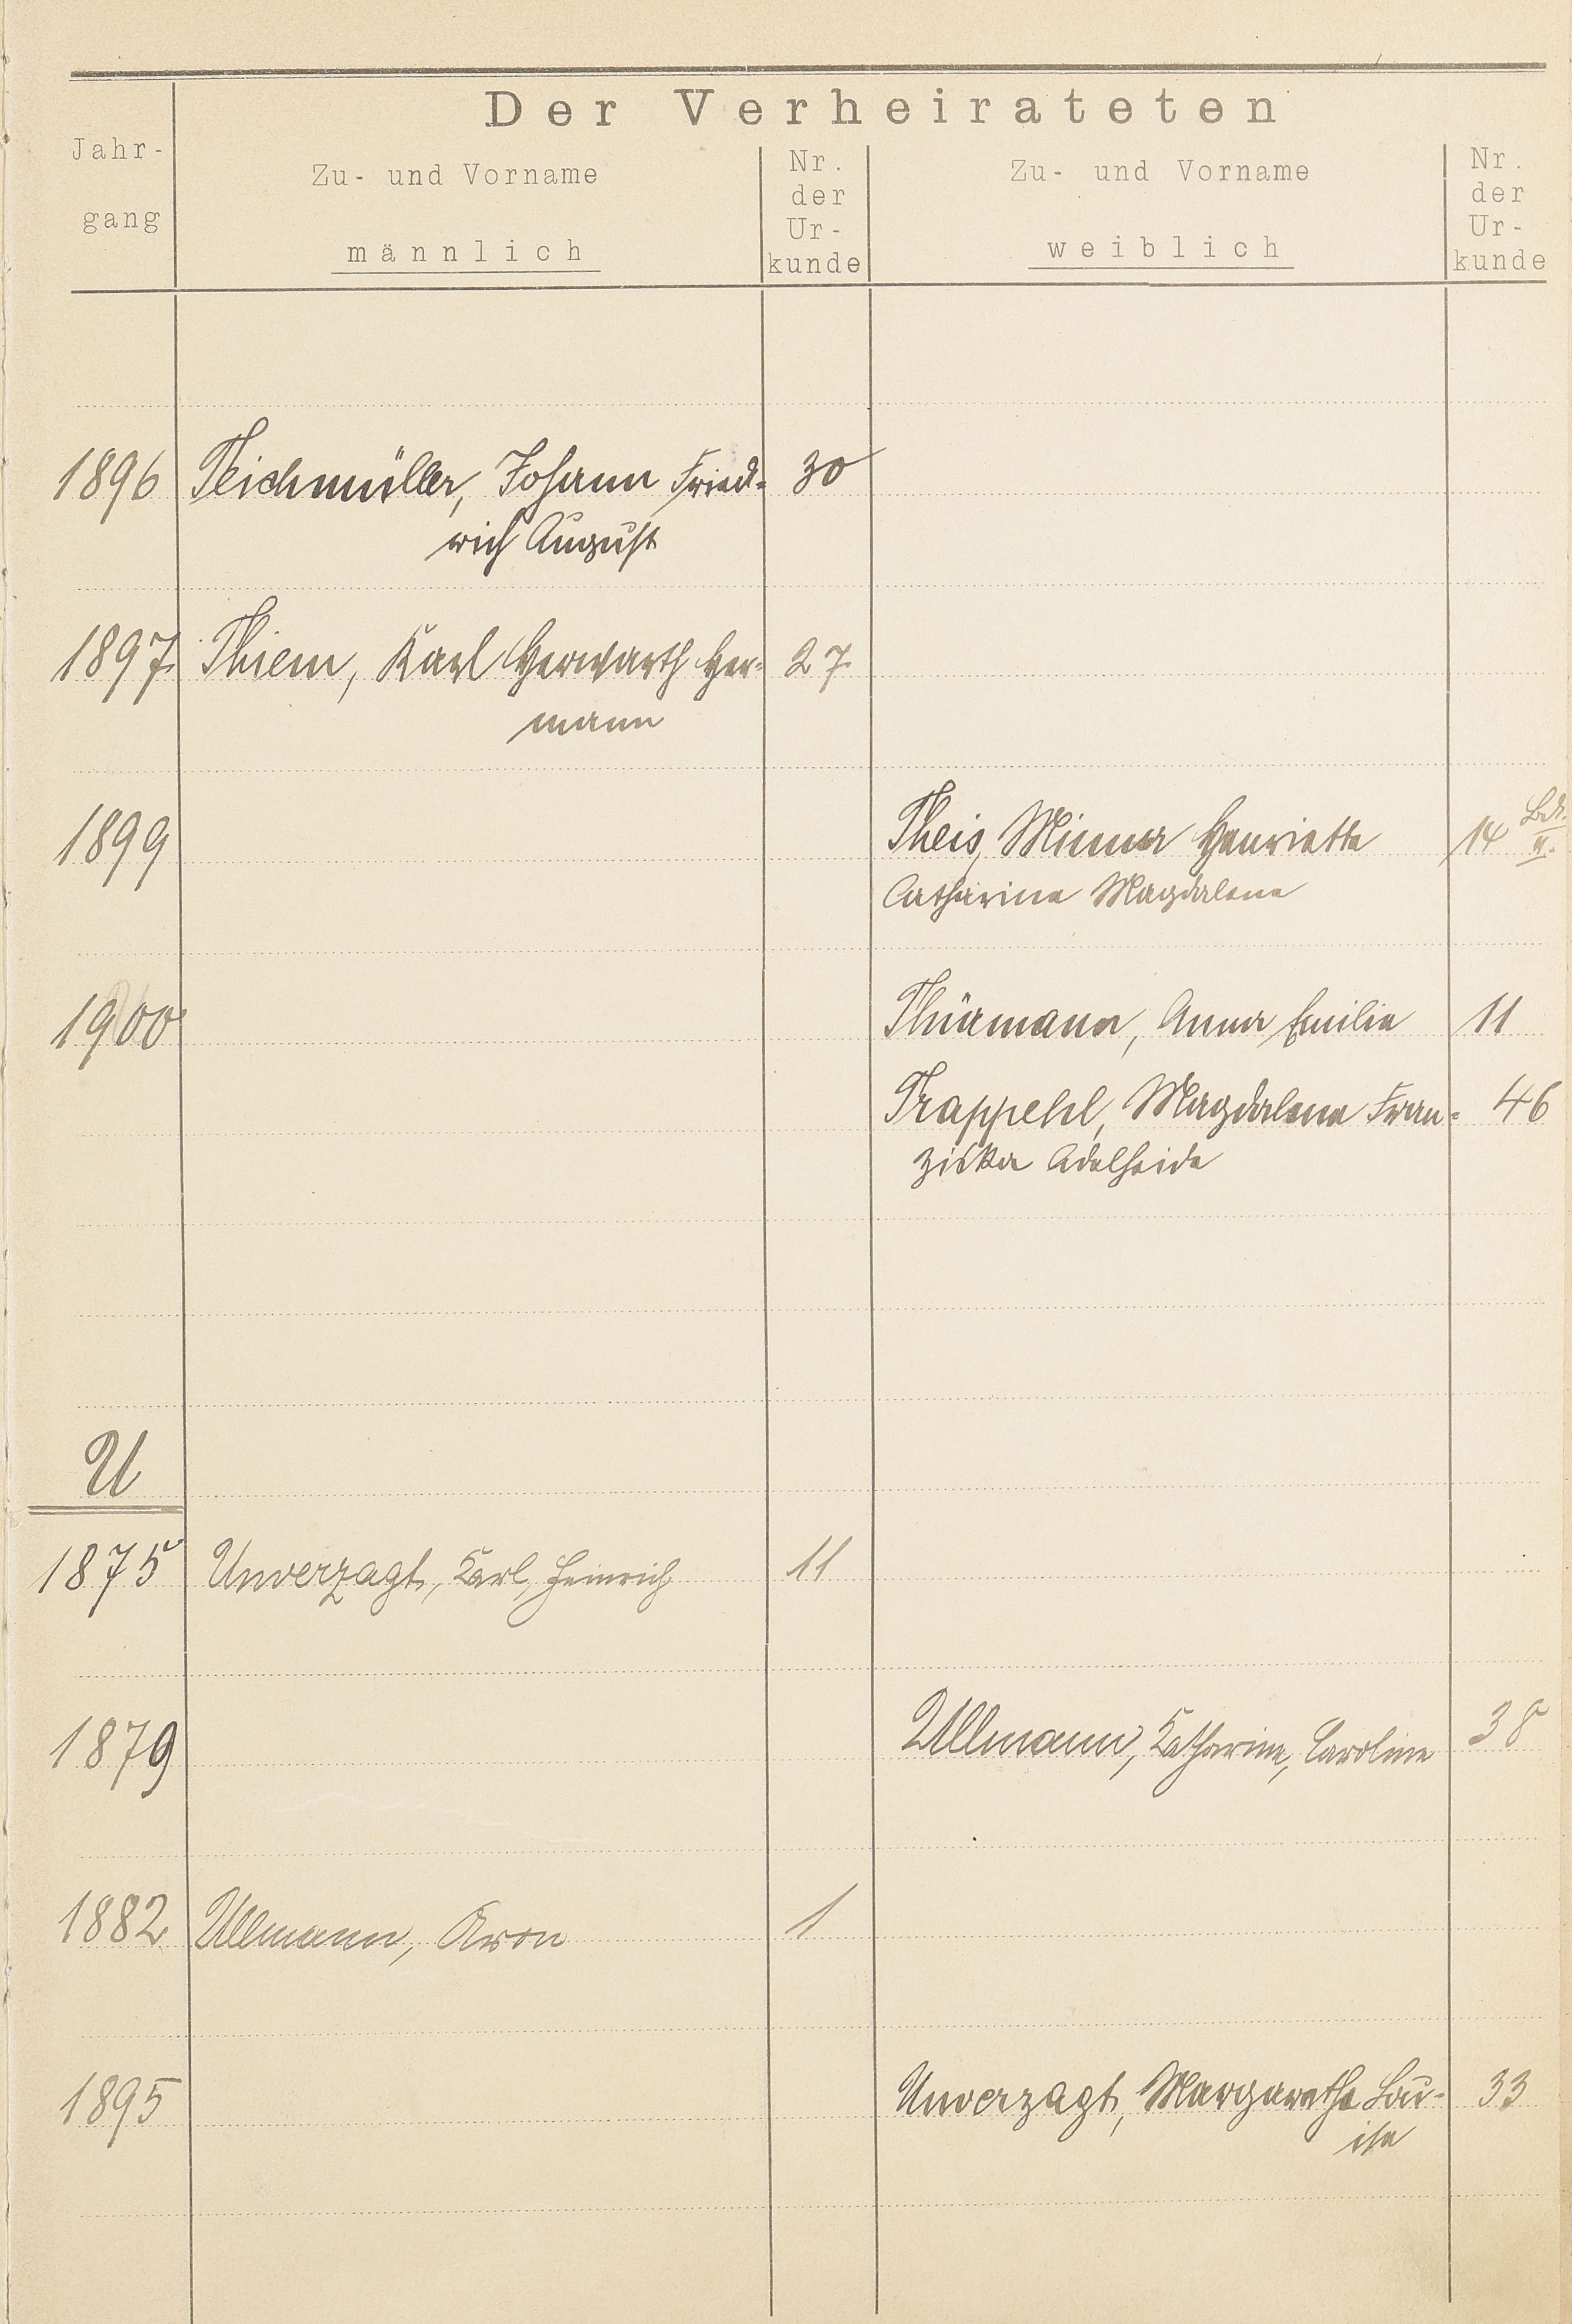 Der Verheirateten
Jahr-
gang
Zu- und Vorname
männlich
Nr.
der
Ur-
kunde
Zu- und Vorname
weiblich
Nr.
der
Ur-
kunde
1896 Teichmüller, Johann Fried= 30
rich August
1897 Thiem, Karl Herwarth Her= 27
mann
1899 Theis, Minna Henriette 14 Bd. II.
Catharine Magdalene
1900 Thürmann, Anna Emilie 11
Trappehl, Magdalena Fran= 46
ziska Adelheide
U
1875 Unverzagt, Karl, Heinrich 11
1879 Ullmann, Katharine, Caroline 38
1882 Ullmann, Aron 1
1895 Unverzagt, Margarethe Lou- 33
ise